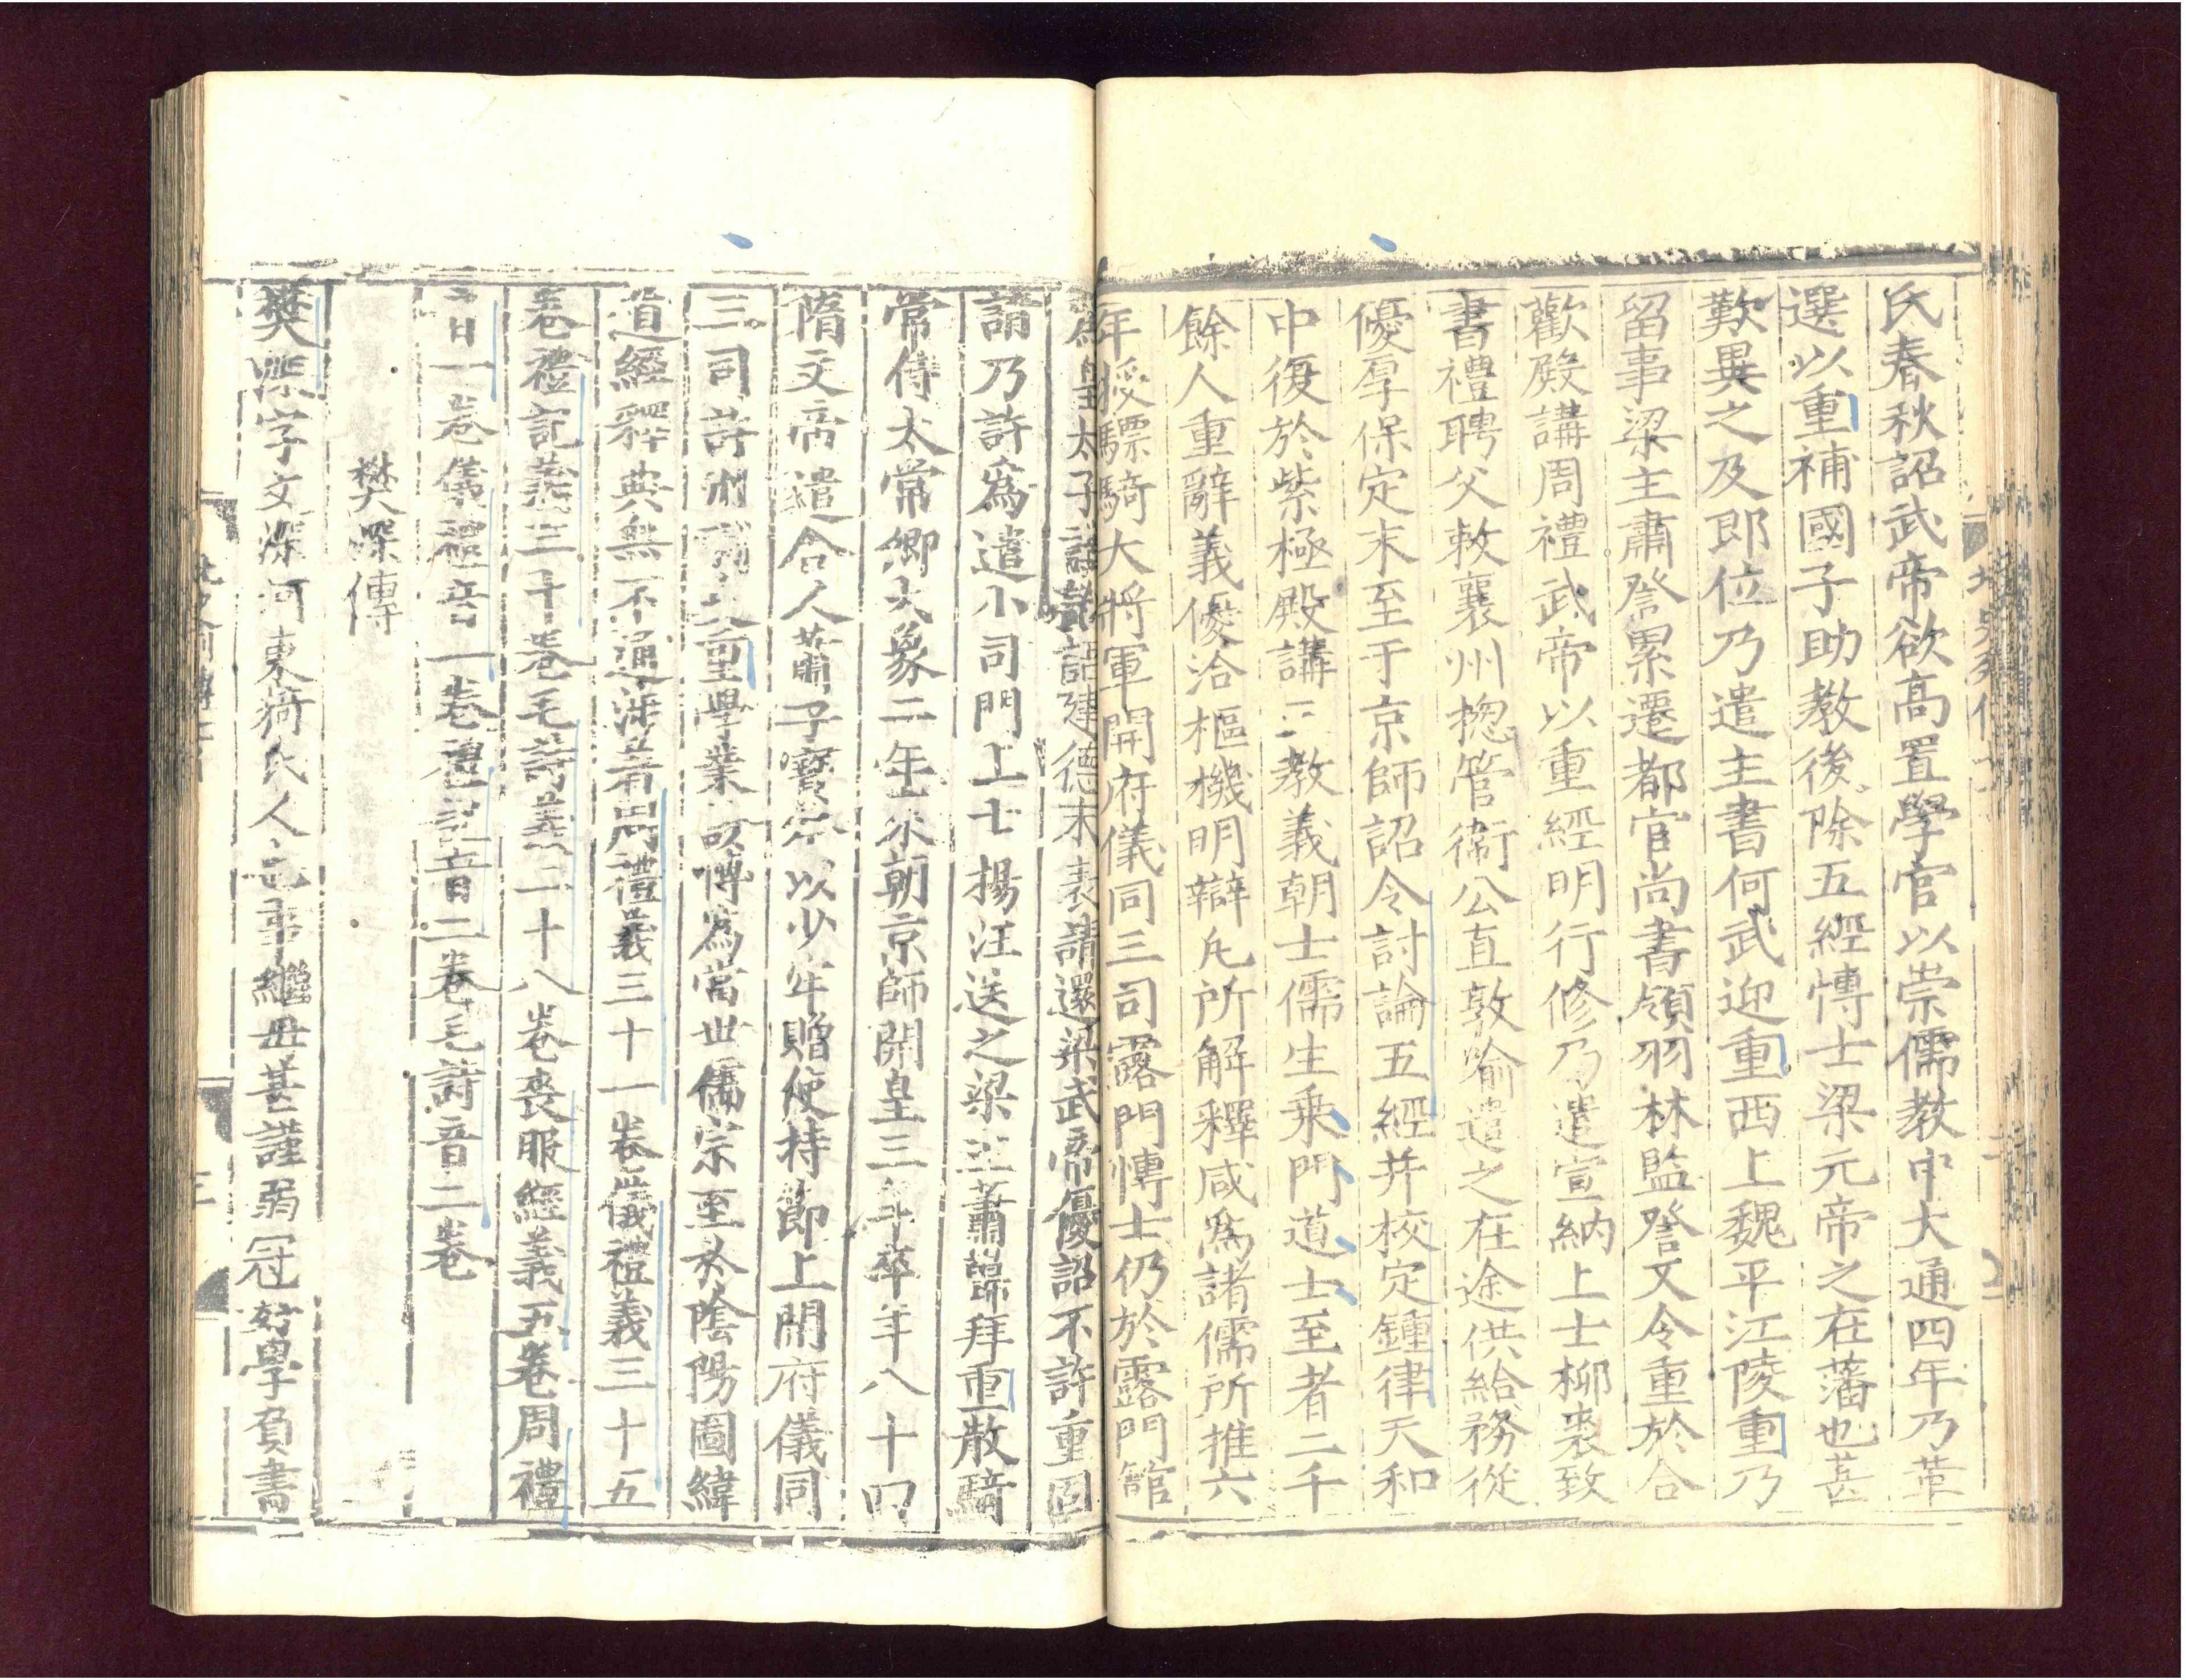 氏春秋詔武帝欲高置學官以崇儒教中大通四年乃革
選以重補國子助教後除五經博士梁元帝之在藩也甚
歎異之及即位乃遣主書何武迎重西上魏平江陵重乃
留事梁主蕭詧累遷都官尚書領羽林監詧又令重於合
歡殿講周禮武帝以重經明行修乃遣宣納上士柳裘致
書禮聘父敕襄州揔管衛公直敦喻遣之在途供給務從
優厚保定末至于京師詔令討論五經并校定鍾律天和
中復於紫極殿講三教義朝士儒生乗門道士至者二千
餘人重辭義優洽樞機明辯凡所解釋咸爲諸儒所推六
年授驃騎大將軍開府儀同三司露門博士仍於露門館
爲皇太子講論建德末表請還梁武帝優詔不許重固
請乃許爲遣小司門上士揚汪送之梁主蕭巋拜重散騎
常侍太常卿大象二年來朝京師開皇三年卒年八十四
隋文帝遣舍人蕭子寶祭以少牢贈使持節上開府儀同
三司許州刺史重學業該博爲當世儒宗至於陰陽圖緯
道經釋典無不通涉著周禮義三十一卷儀禮義三十五
卷禮記義三十卷毛詩義二十八卷喪服經義五卷周禮
音一卷儀禮音一卷禮記音二卷毛詩音二卷
樊深傳
樊深字文深河東猗氏人也事繼母甚謹弱冠好學負書